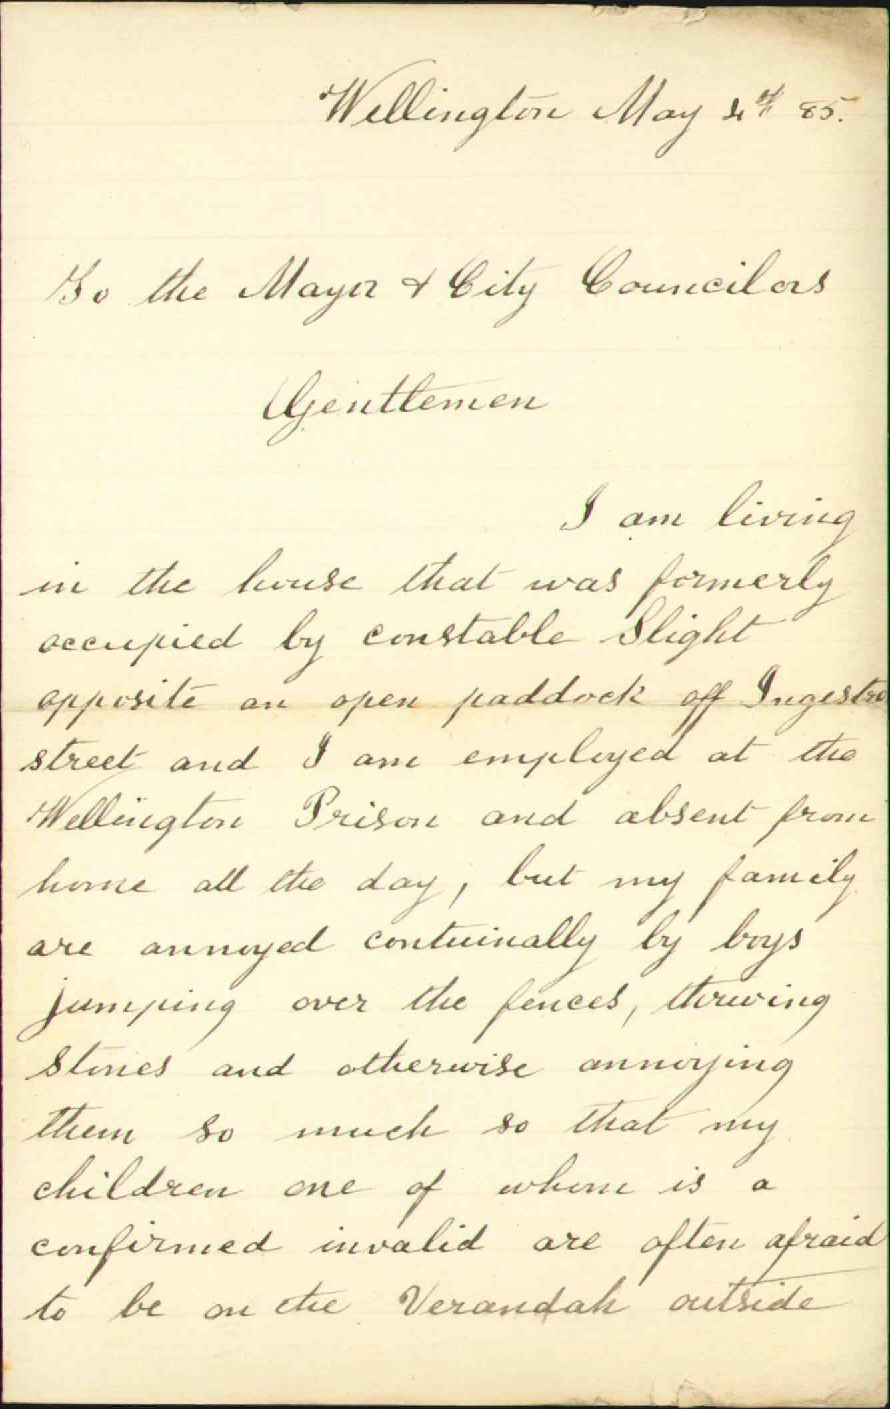 Wellington May 4th 85.
To the Mayor & City Councilors
Gentlemen
I am living
in the house that was formerly
occupied by constable Slight
opposite an open paddock off Ingestre
street and I am employed at the
Wellington Prison and absent from
home all the day, but my family
are annoyed contuinally by boys
jumping over the fences, throwing
stones and otherwise annoying
them so much so that my
children one of whom is a
confirmed invalid are often afraid
to be on the Verandah outside